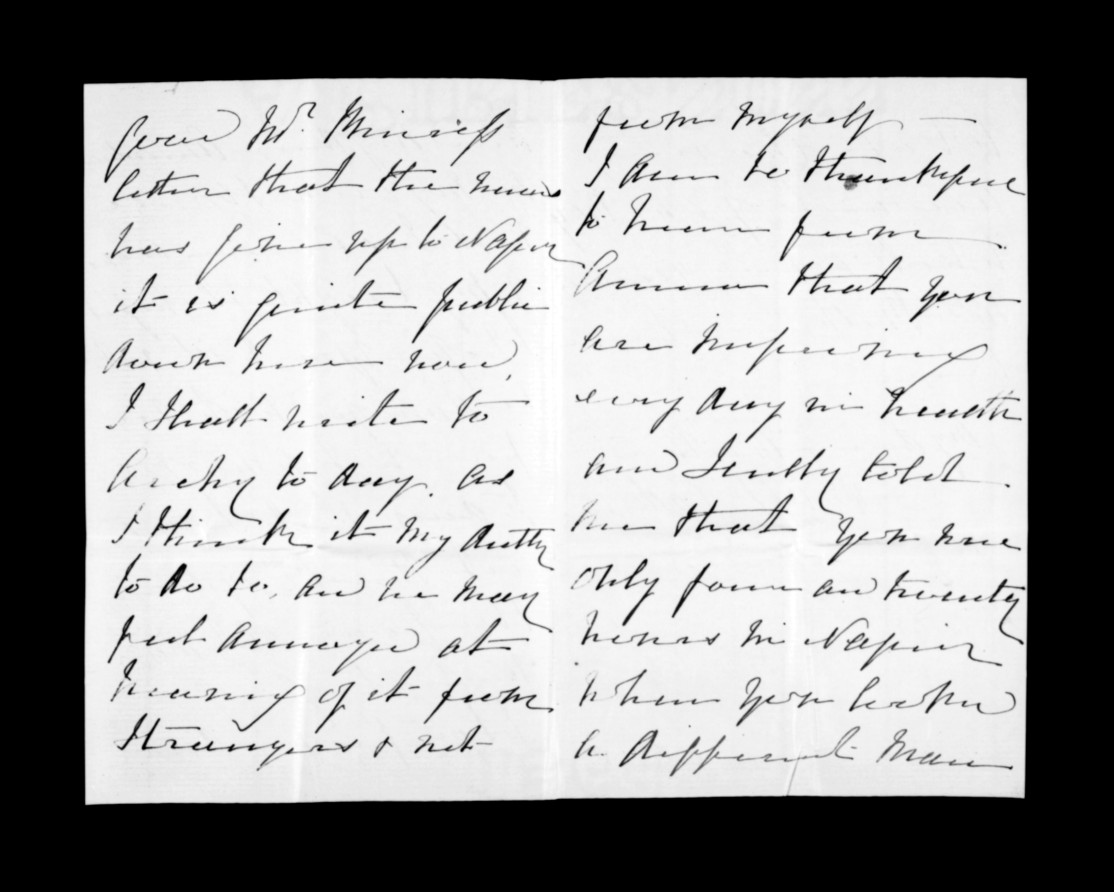 from Mr.
letter that the news
has gone up to Napier
it is quite public
down here now,
I shall write to
Archy to day. as
I think it my dutty
to do so, and he may
feel annoyed at
hearing of it from
Strangers & not
from Myself —
I am so thankful
to hear from
Annie that you
are improving
every day in health
and told
me that you were
only four and twenty
hours in Napier
when you looked
a different Man